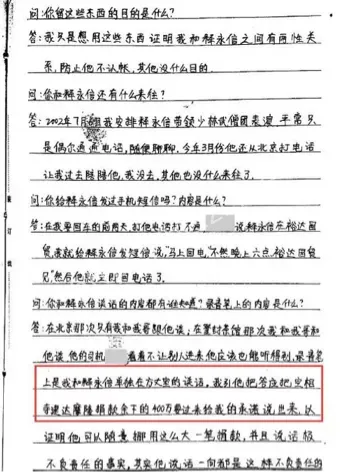 问:你留这些东西的目的是什么?
答:我只是想用这些东西证明我和释永信之间有两性关
系,防止他不认帐,其他没什么目的.
问:你和释永信还有什么来往?
答:2002年7月 我安排释永信带领少林武僧团表演,平常只
是偶尔通通电话,随便聊聊,今年3月份他还从北京打电话
让我过去陪陪他,我没去,其他也没什么来往了.
问:你给释永信发过手机短信吗?内容是什么?
答:在我要回车的前两天,打他电话打不通, 说释永信在裕达国
贸,我就给释永信发短信说,"马上回电,不然晚上六点,裕达国贸
见",然后他就立即回电话了.
问:你和释永信谈话的内容都有谁知道?录音笔上的内容是什么?
答:在北京那次只有我和我哥跟他谈,在 那次我和我哥和
他谈,他的司机 看着不让别人进来他应该也能听得到,录音笔
上是我和释永信单独在方丈室的谈话,我引他把答应把空相
寺建达摩像捐款余下的400万要过来给我的承诺说出来,以
证明他可以随意挪用这么大一笔捐款,并且说话极
不负责任的事实,其实他说话一向都是这样不负责任的